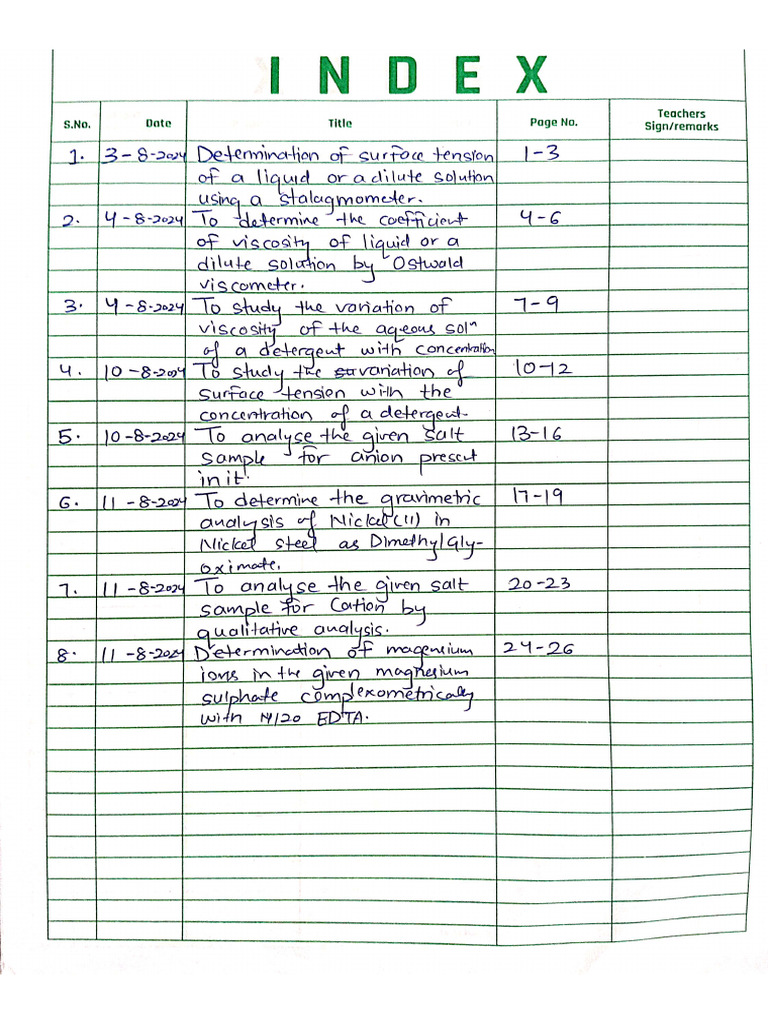 INDEX
S.No. Date Title Page No. Teachers Sign/remarks
1. 3-8-2024 Determination of surface tension 1-3
of a liquid or a dilute solution
using a stalagmometer.
2. 4-8-2024 To determine the coefficient 4-6
of viscosity of liquid or a
dilute solution by Ostwald
viscometer.
3. 4-8-2024 To study the variation of 7-9
viscosity of the aqeous solⁿ
of a detergent with concentration
4. 10-8-2024 To study the variation of 10-12
surface tension with the
concentration of a detergent.
5. 10-8-2024 To analyse the given salt 13-16
sample for anion present
in it.
6. 11-8-2024 To determine the gravimetric 17-19
analysis of Nickel(II) in
Nickel steel as Dimethyl Gly-
oximate.
7. 11-8-2024 To analyse the given salt 20-23
sample for Cation by
qualitative analysis.
8. 11-8-2024 Determination of magensium 24-26
ions in the given magnesium
sulphate complexometrically
with N/20 EDTA.